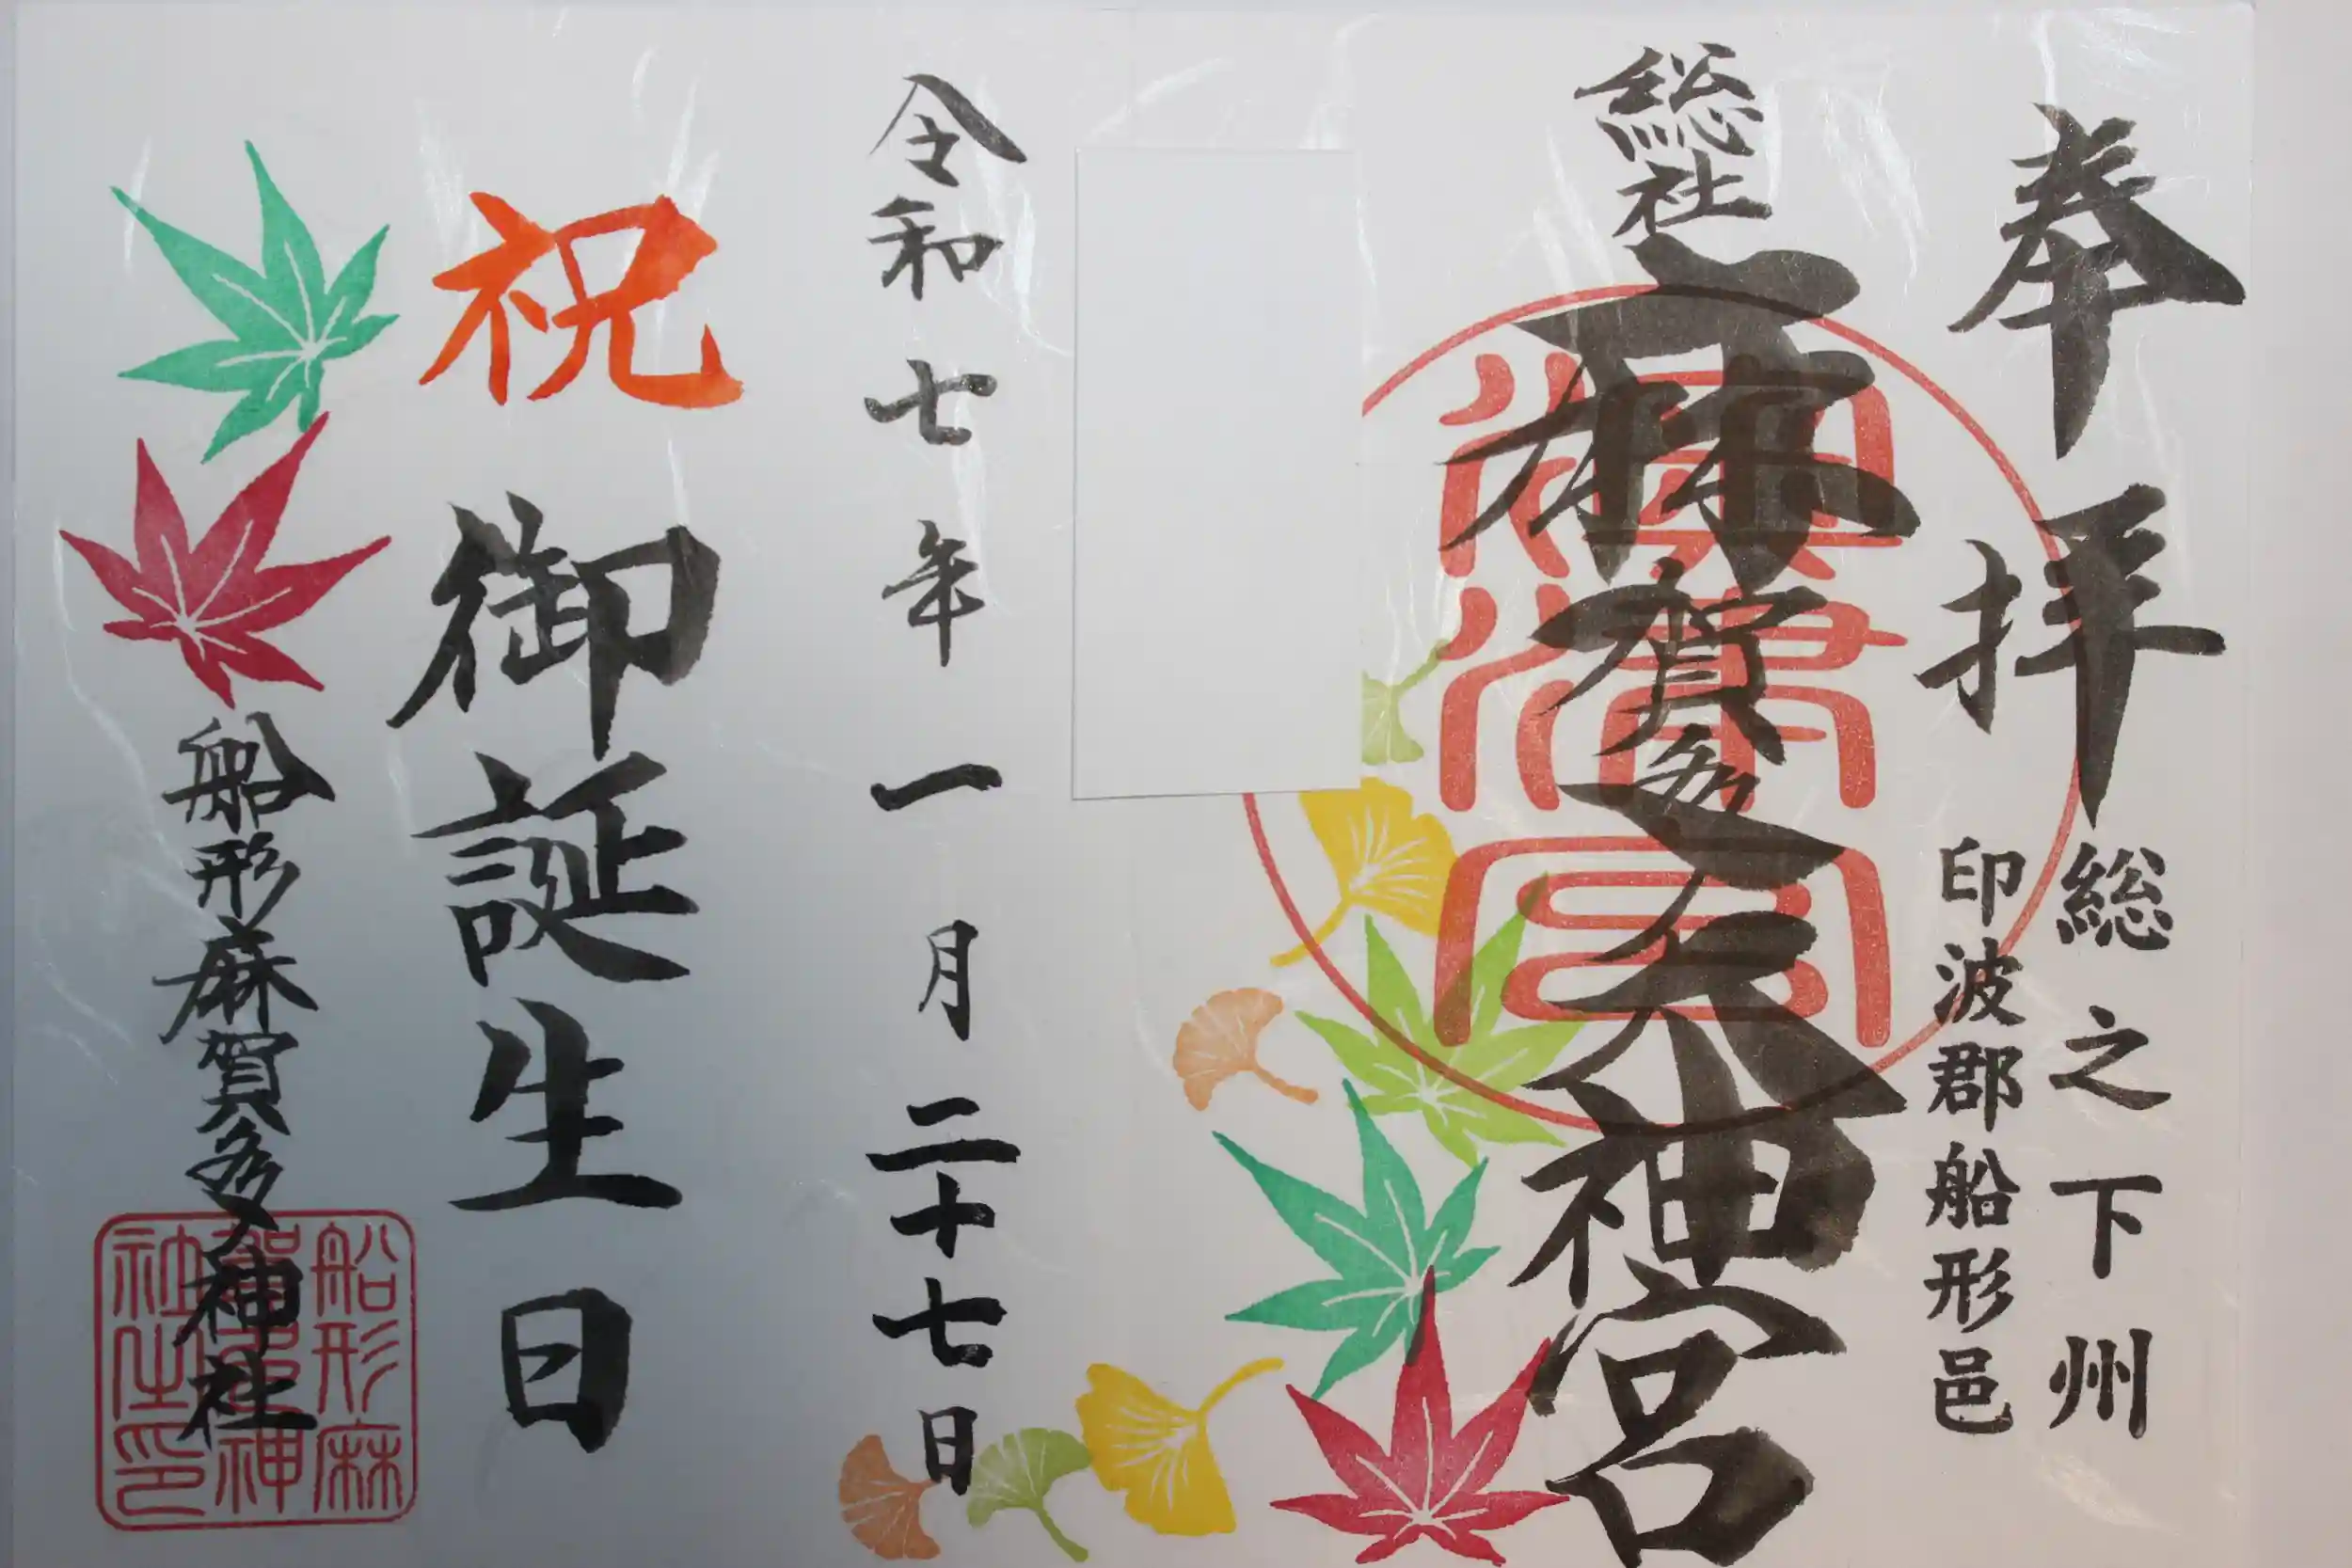 奉拝
総之下州
印波郡船形邑
総社
麻賀多大神宮
令和七年一月二十七日
祝御誕生日
船形麻賀多神社
船形麻
賀多神
社之印